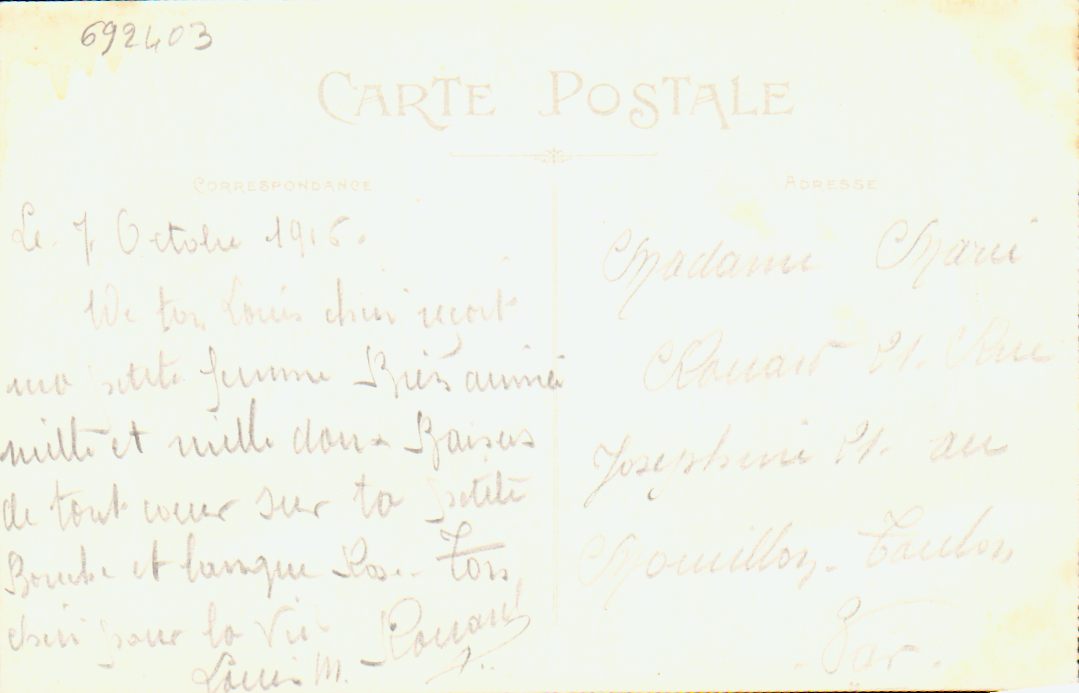 692403
CARTE POSTALE
CORRESPONDANCE
ADRESSE
Le 7 Octobre 1916.
De ton Louis cheri reçoit
ma petite femme Bien aimée
mille et mille doux Baisers
de tout coeur sur ta petite
Bouche et langue Rose. Ton
cheri pour la Vie
Louis M. Rouard
Madame Marie
Rouard 21. Rue
Josephine 21. au
Mourillon. Toulon
Var.